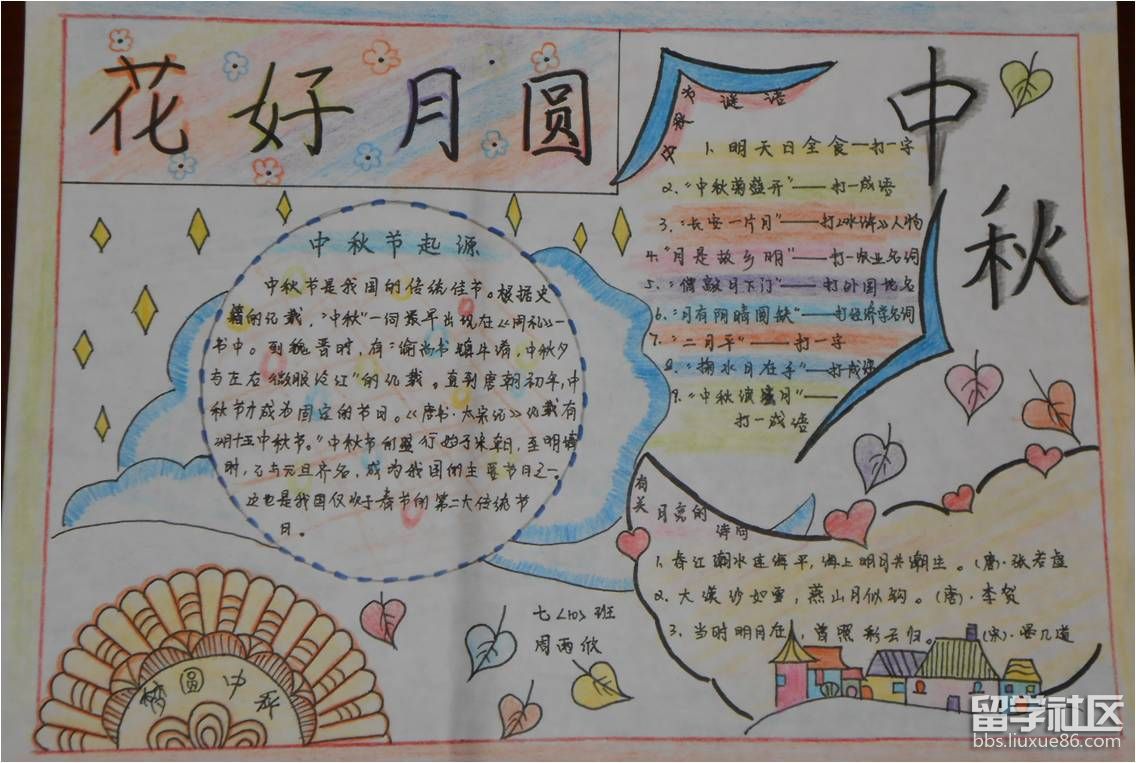 花好月圆
中秋
中秋节起源
中秋节是我国的传统佳节。根据史
籍的记载，“中秋”一词最早出现在《周礼》一
书中。到魏晋时，有“谕尚书镇牛渚，中秋夕
与左右微服泛江”的记载。直到唐朝初年，中
秋节才成为固定的节日。《唐书·太宗记》记载有
“八月十五中秋节。”中秋节的盛行始于宋朝，至明清
时，已与元旦齐名，成为我国的主要节日之一。
这也是我国仅次于春节的第二大传统节
日。
中秋节谜语
1、明天日全食——打一字
2、“中秋菊盛开”——打一成语
3、“长安一片月”——打《水浒》人物
4、“月是故乡明”——打一
5、“僧敲月下门”——打外国地名
6、“月有阴晴圆缺”——打经济学名词
7、“二月平”——打一字
8、“掬水月在手”——打成语
9、“中秋度蜜月”——
打一成语
有关月亮的
诗句
1、春江潮水连海平，海上明月共潮生。（唐）·张若虚
2、大漠沙如雪，燕山月似钩。（唐）·李贺
3、当时明月在，曾照彩云归。（宋）·晏几道
七<10>班
周雨欣
梦圆中秋
留学社区
bbs.liuxue86.com